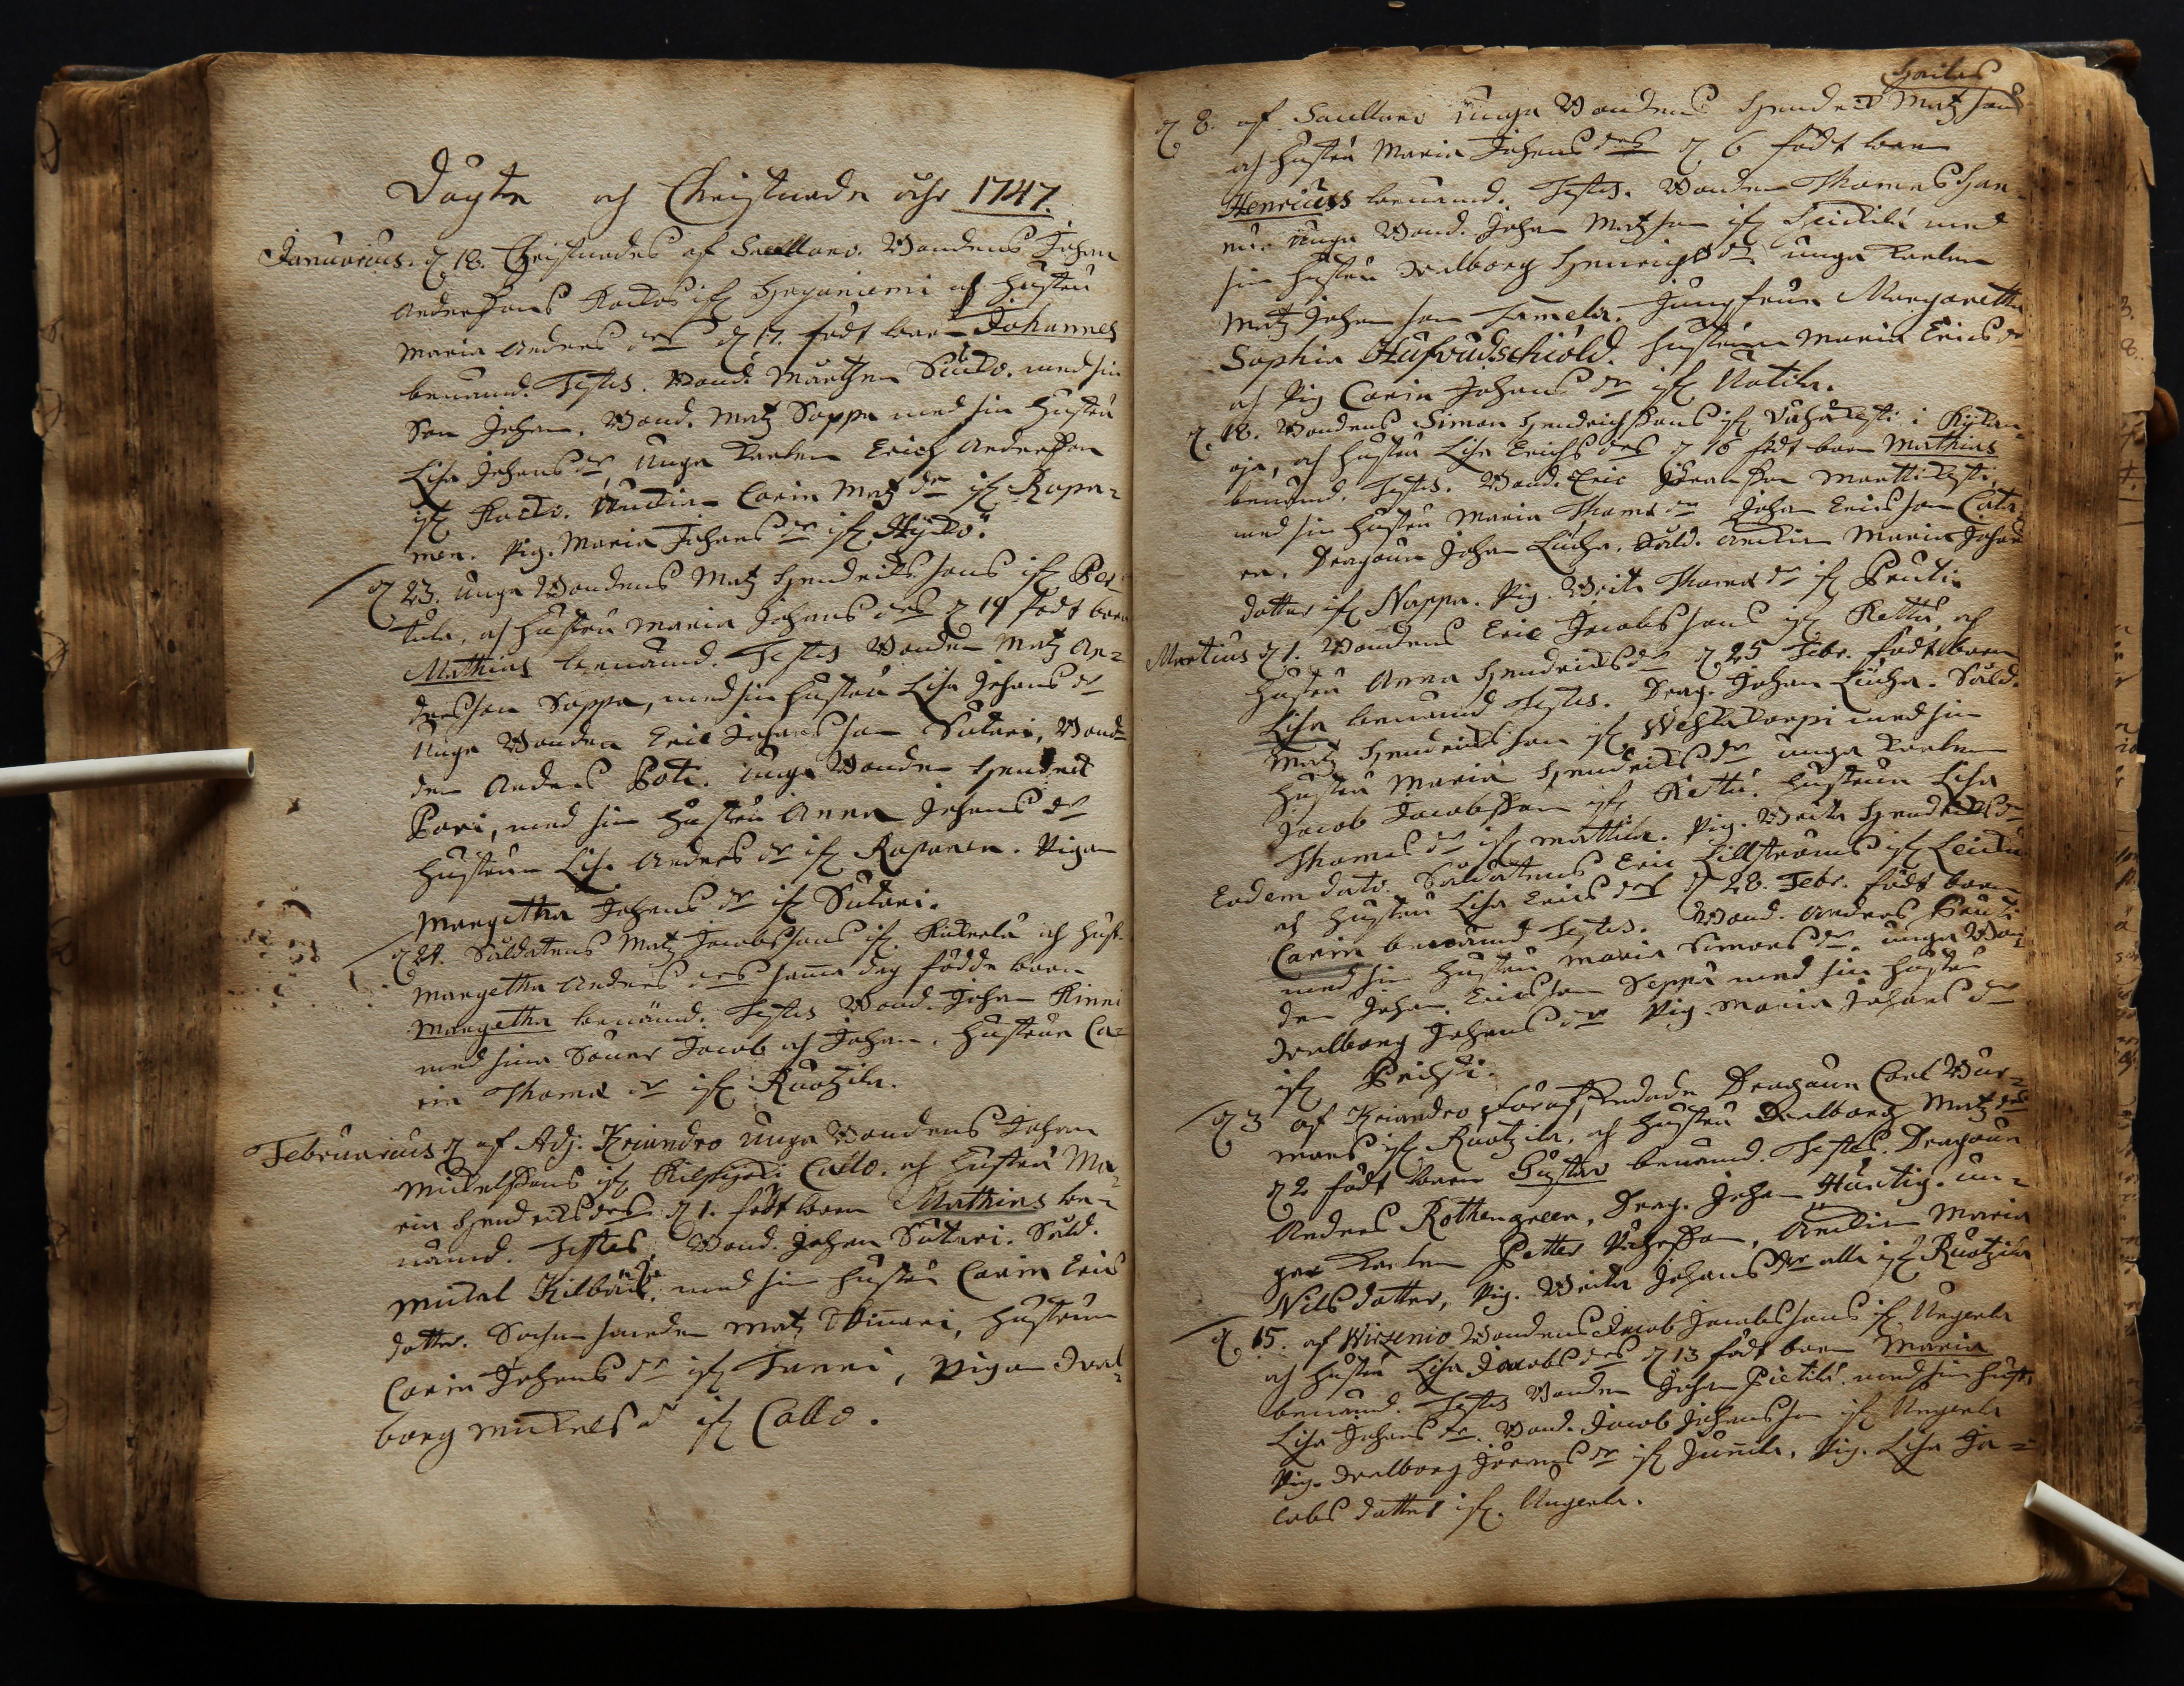 Döpte och Christnade åhr 1747.
Januarius. d 18. Christnades af Saellano. Bondens Johan
Anderssons Kockos ifr. Hoyoniemi och hustru
Maria Anders drs d 17. födt barn Johannes
benämnd. Testes. Bond. Mårthen med sin
Son Johan, Bond. Matz Soppa med sin hustru
Lisa Johans dr, Unga Karlen Erich Andersson
ifr Kocko. Änckian Carin Matz dr ifr Ropa-
nen. Pig. Maria Johans dr ifr Hyckö.
d 23. Unga Bondens Matz Hendricksons ifr Per-
tula, och hustru Maria Johans drs d 19 födt barn
Mathias benämnd. Testes Bonden Matz An-
dersson Soppa, med sin hustru Lisa Johans dr
Unga Bonden Eric Johansson Sutari, Bon-
den Anders Poti. Unga Bonden Hendrick
Pori, med sin hustru Anna Johans dr
hustrun Lisa Anders dr ifr Roponen. Pigan
Margetha Johans dr ifr Sutari.
d 24. Soldatens Matz Jacobssons ifr. och hust.
Margetha Anders drs samma dag födde barn
Margetha benämnd. Testes Bond. Johan Kinni
med sina Söner Jacob och Johan. Hustrun Ca-
rin Thomæ dr ifr Ruotzila.
Februarius d af Adj. Kriandro Unga Bondens Johan
Mickelssons ifr Kilpijoki Callo. och hustru Ma-
ria Hendricks drs d 1. födt barn Mathias be-
nämnd. Testes. Bond. Johan Sutari. Sold.
Mickel med sin hustru Carin Erics
dotter. Matz Skinnari, hustrun
Carin Johans dr ifr Tanni, Pigan Wal-
borg Mickels d ifr Callo.
d 8. af Saellano Unga Bondens Hendrick Matz sons
och hustru Maria Johans drs d 6 födt barn
Henricus benämnd. Testes. Bonden Thomas
Unga Bond. Johan Matzson ifr med
sin hustru Walborg Henrichs dr Unga Karlen
Matz Johansson Tamela. Jungfrun Margaretha
Sophia Hufvudschiöld. hustrun Maria Erics dr
och Pig Carin Johans dr ifr Uotila.
d 18. Bondens Simon Hendrichssons ifr i
oja, och hustru Lisa Erichs drs d 16 födt barn Mathias
benämnd. Testes. Bond. Eric
med sin hustru Maria Thomæ dr Johan Ericsson
Dragoun Johan Liucha. Sold. Änckia Maria Johans
dotter ifr Nappa. Pig. Brita Thomæ dr ifr Pentti
Martius d 1. Bondens Eric Jacobssons ifr Rettu, och
hustru Anna Hendricks drs d 25 Febr. födt barn
Lisa benämnd Testes. Drag. Johan Liucha. Sold.
Matz Hendricksson ifr med sin
hustru Maria Hendricks dr unga Karlen
Jacob Jacobsson ifr Rettu. hustrun Lisa
Thomæ dr ifr Mattila. Pig. Brita Hendricks dr
Eodem dato. Soldatens Eric Lillströms ifr
och hustru Lisa Erics drs d 28. Febr. födt barn
Carin benämnd Testes. Bond. Anders Pentti
med sin hustru Maria Simons dr. unga Bon-
den Johan Ericsson Seppä med sin hustru
Walborg Johans dr Pig. Maria Johans dr
ifr
d 3 af Kriandro förafskedade Dragoun Carl
ifr Ruotzila, och hustru Walborg Matz drs
d 2 födt barn Gustav benämnd. Testes. Dragoun
Anders Rothengreen, Drag. Johan Hurtig. un-
ga Karlen Petter Änckian Maria
Nils dotter, Pig. Brita Johans dr alla ifr Ruotzila
d 15. af Wirzenio Bondens Jacob Jacobssons ifr Ungerla
och hustru Lisa Jacobs drs d 13 födt barn Maria
benämnd. Testes Bonden Johan Pietilä med sin hust.
Lisa Johans dr. Bond. Jacob Johansson ifr Ungerla
Pig. Walborg Jörens dr ifr Junnila, Pig. Lisa Ja-
cobs dotter ifr. Ungerla.